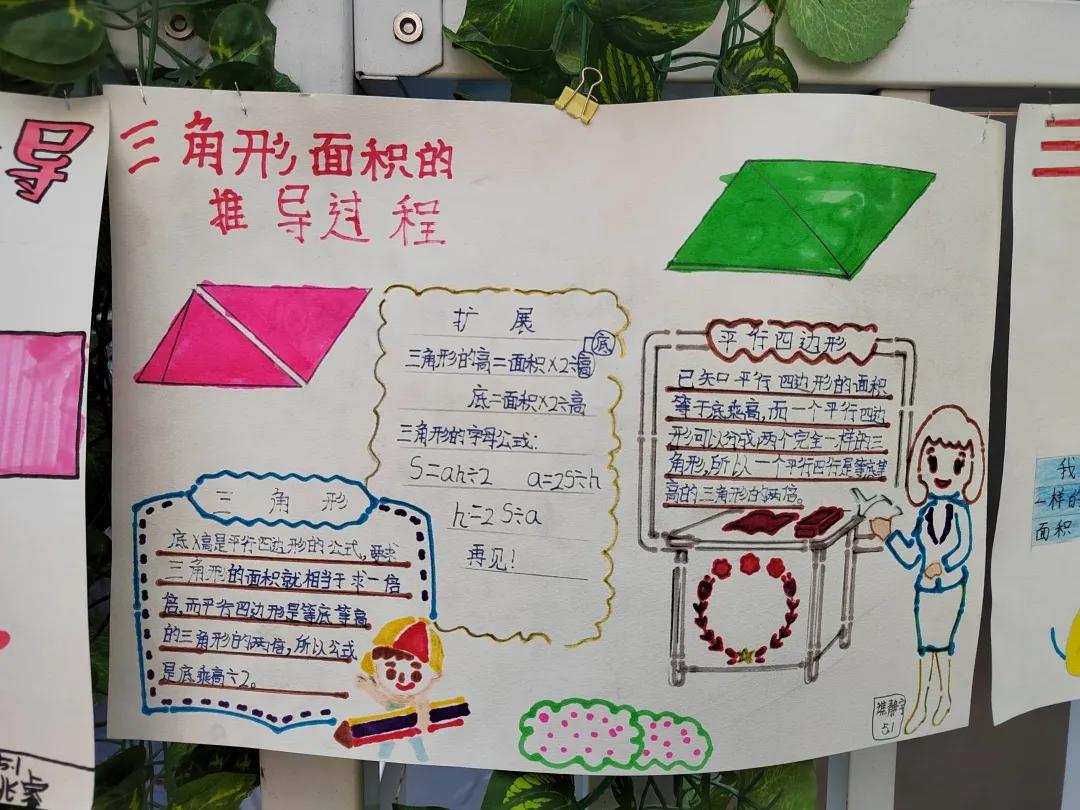 三角形面积的
推导过程
扩 展
三角形的高=面积×2÷高底
底=面积×2÷高
三角形的字母公式:
S=ah÷2 a=2S÷h
h=2S÷a
再见!
平行四边形
已知平行四边形的面积
等于底乘高,而一个平行四边
形可以分成两个完全一样的三
角形,所以一个平行四行是等底等
高的三角形的两倍。
三 角 形
底×高是平行四边形的公式,要求
三角形的面积就相当于求一倍
倍,而平行四边形是等底等高
的三角形的两倍,所以公式
是底乘高÷2。
5.1
导
5.1
三
我
一样的
面积